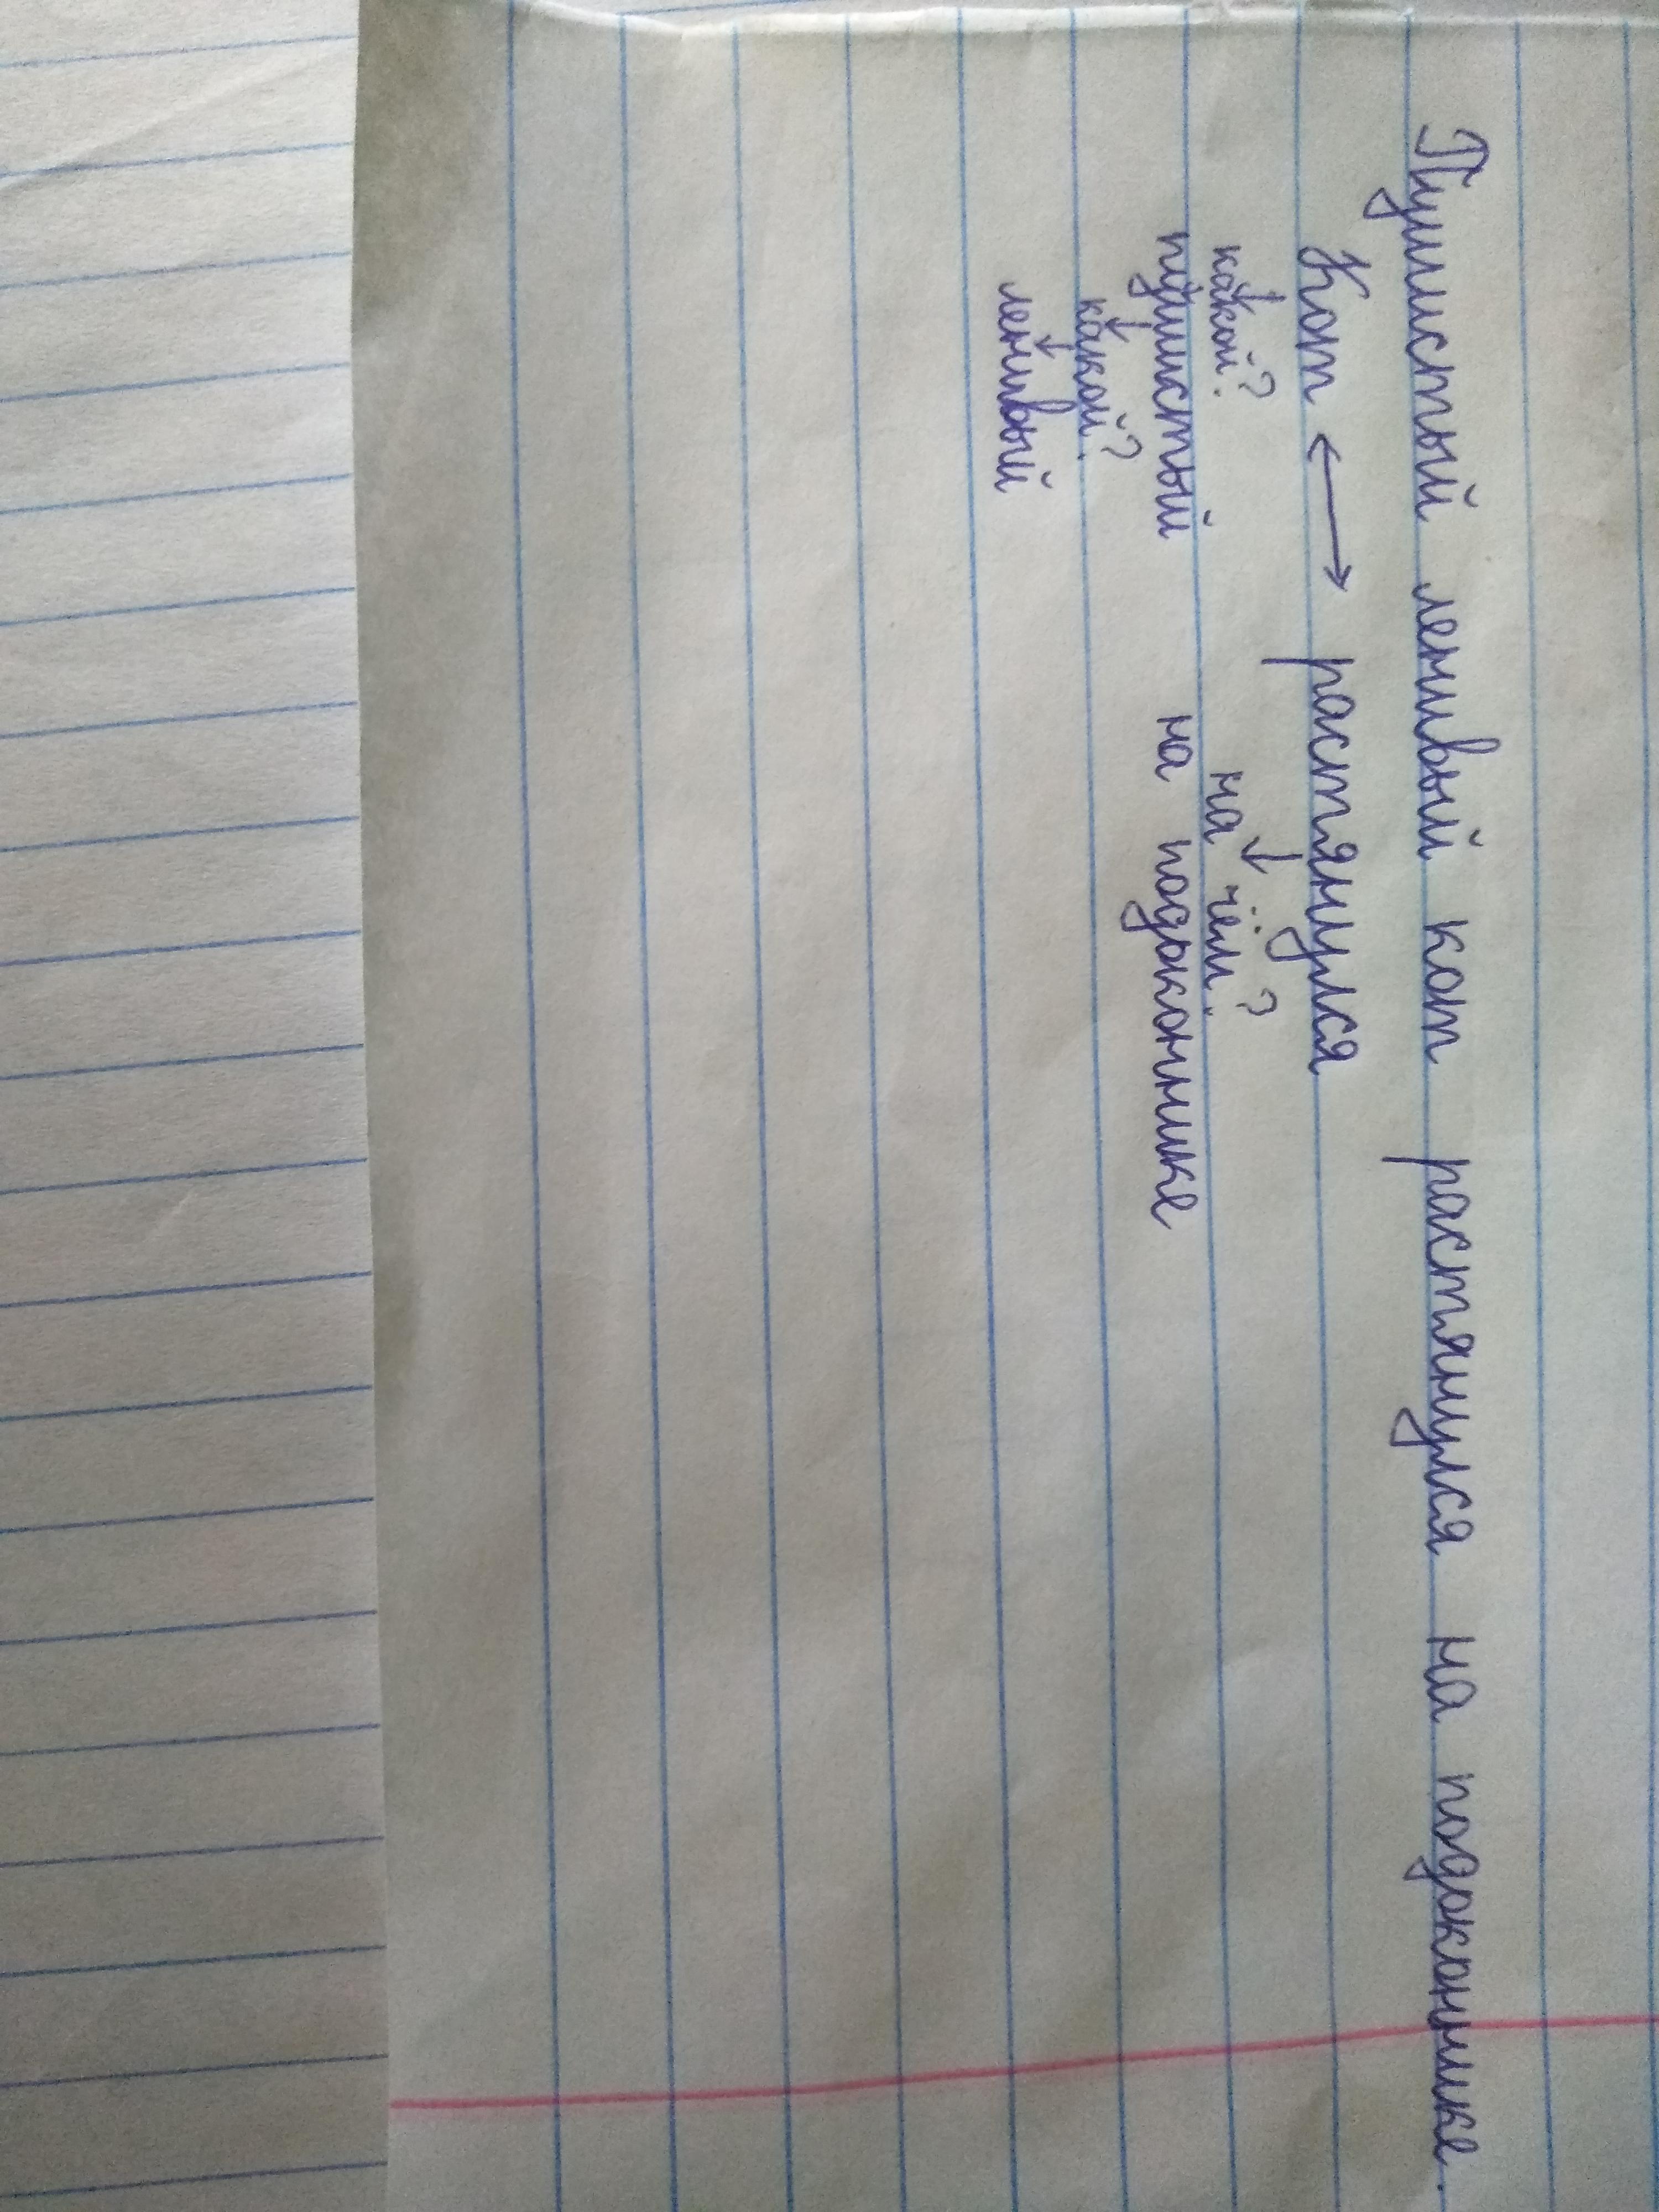 Пушистый ленивый кот растянулся на подоконнике.
Кот ⟷ растянулся
какой? на чём?
пушистый на подоконнике
какой?
ленивый